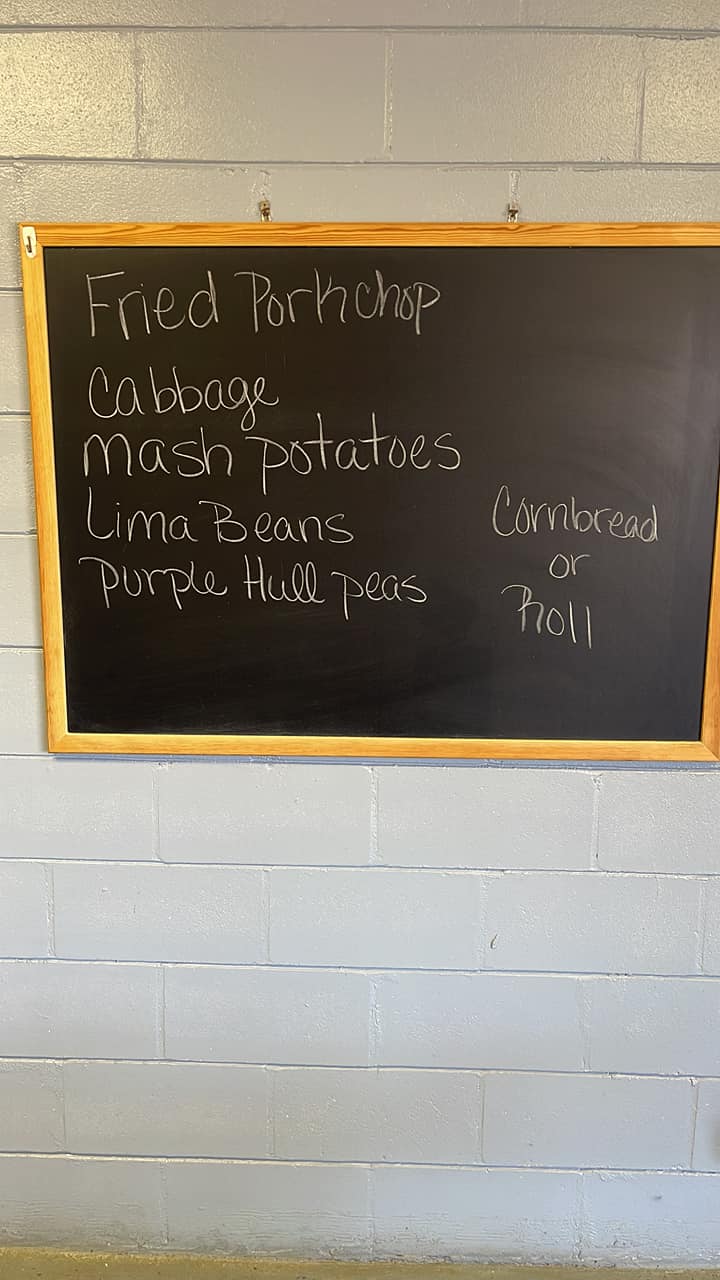 Fried Porkchop
Cabbage
mash potatoes
Lima Beans
purple Hull peas
Cornbread
or
Roll